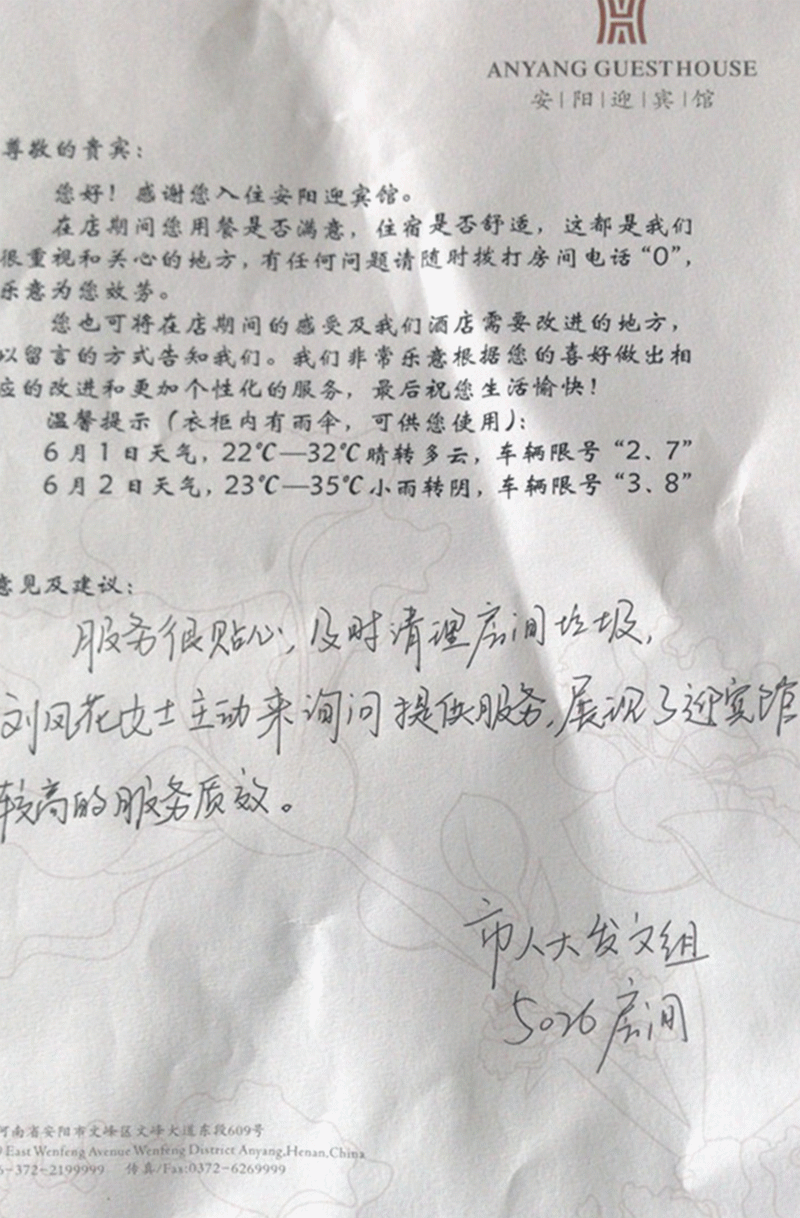 ANYANG GUESTHOUSE
安|阳|迎|宾|馆
尊敬的贵宾：
您好！感谢您入住安阳迎宾馆。
在店期间您用餐是否满意，住宿是否舒适，这都是我们
很重视和关心的地方，有任何问题请随时拨打房间电话“0”，
乐意为您效劳。
您也可将在店期间的感受及我们酒店需要改进的地方，
以留言的方式告知我们。我们非常乐意根据您的喜好做出相
应的改进和更加个性化的服务，最后祝您生活愉快！
温馨提示（衣柜内有雨伞，可供您使用）：
6月1日天气，22℃—32℃晴转多云，车辆限号“2、7”
6月2日天气，23℃—35℃小雨转阴，车辆限号“3、8”
意见及建议：
服务很贴心，及时清理房间垃圾，
刘凤花女士主动来询问提供服务，展现了迎宾馆
较高的服务质效。
市人大发文组
5026房间
河南省安阳市文峰区文峰大道东段609号
East Wenfeng Avenue Wenfeng District Anyang,Henan,China
6-372-2199999 传真/Fax:0372-6269999